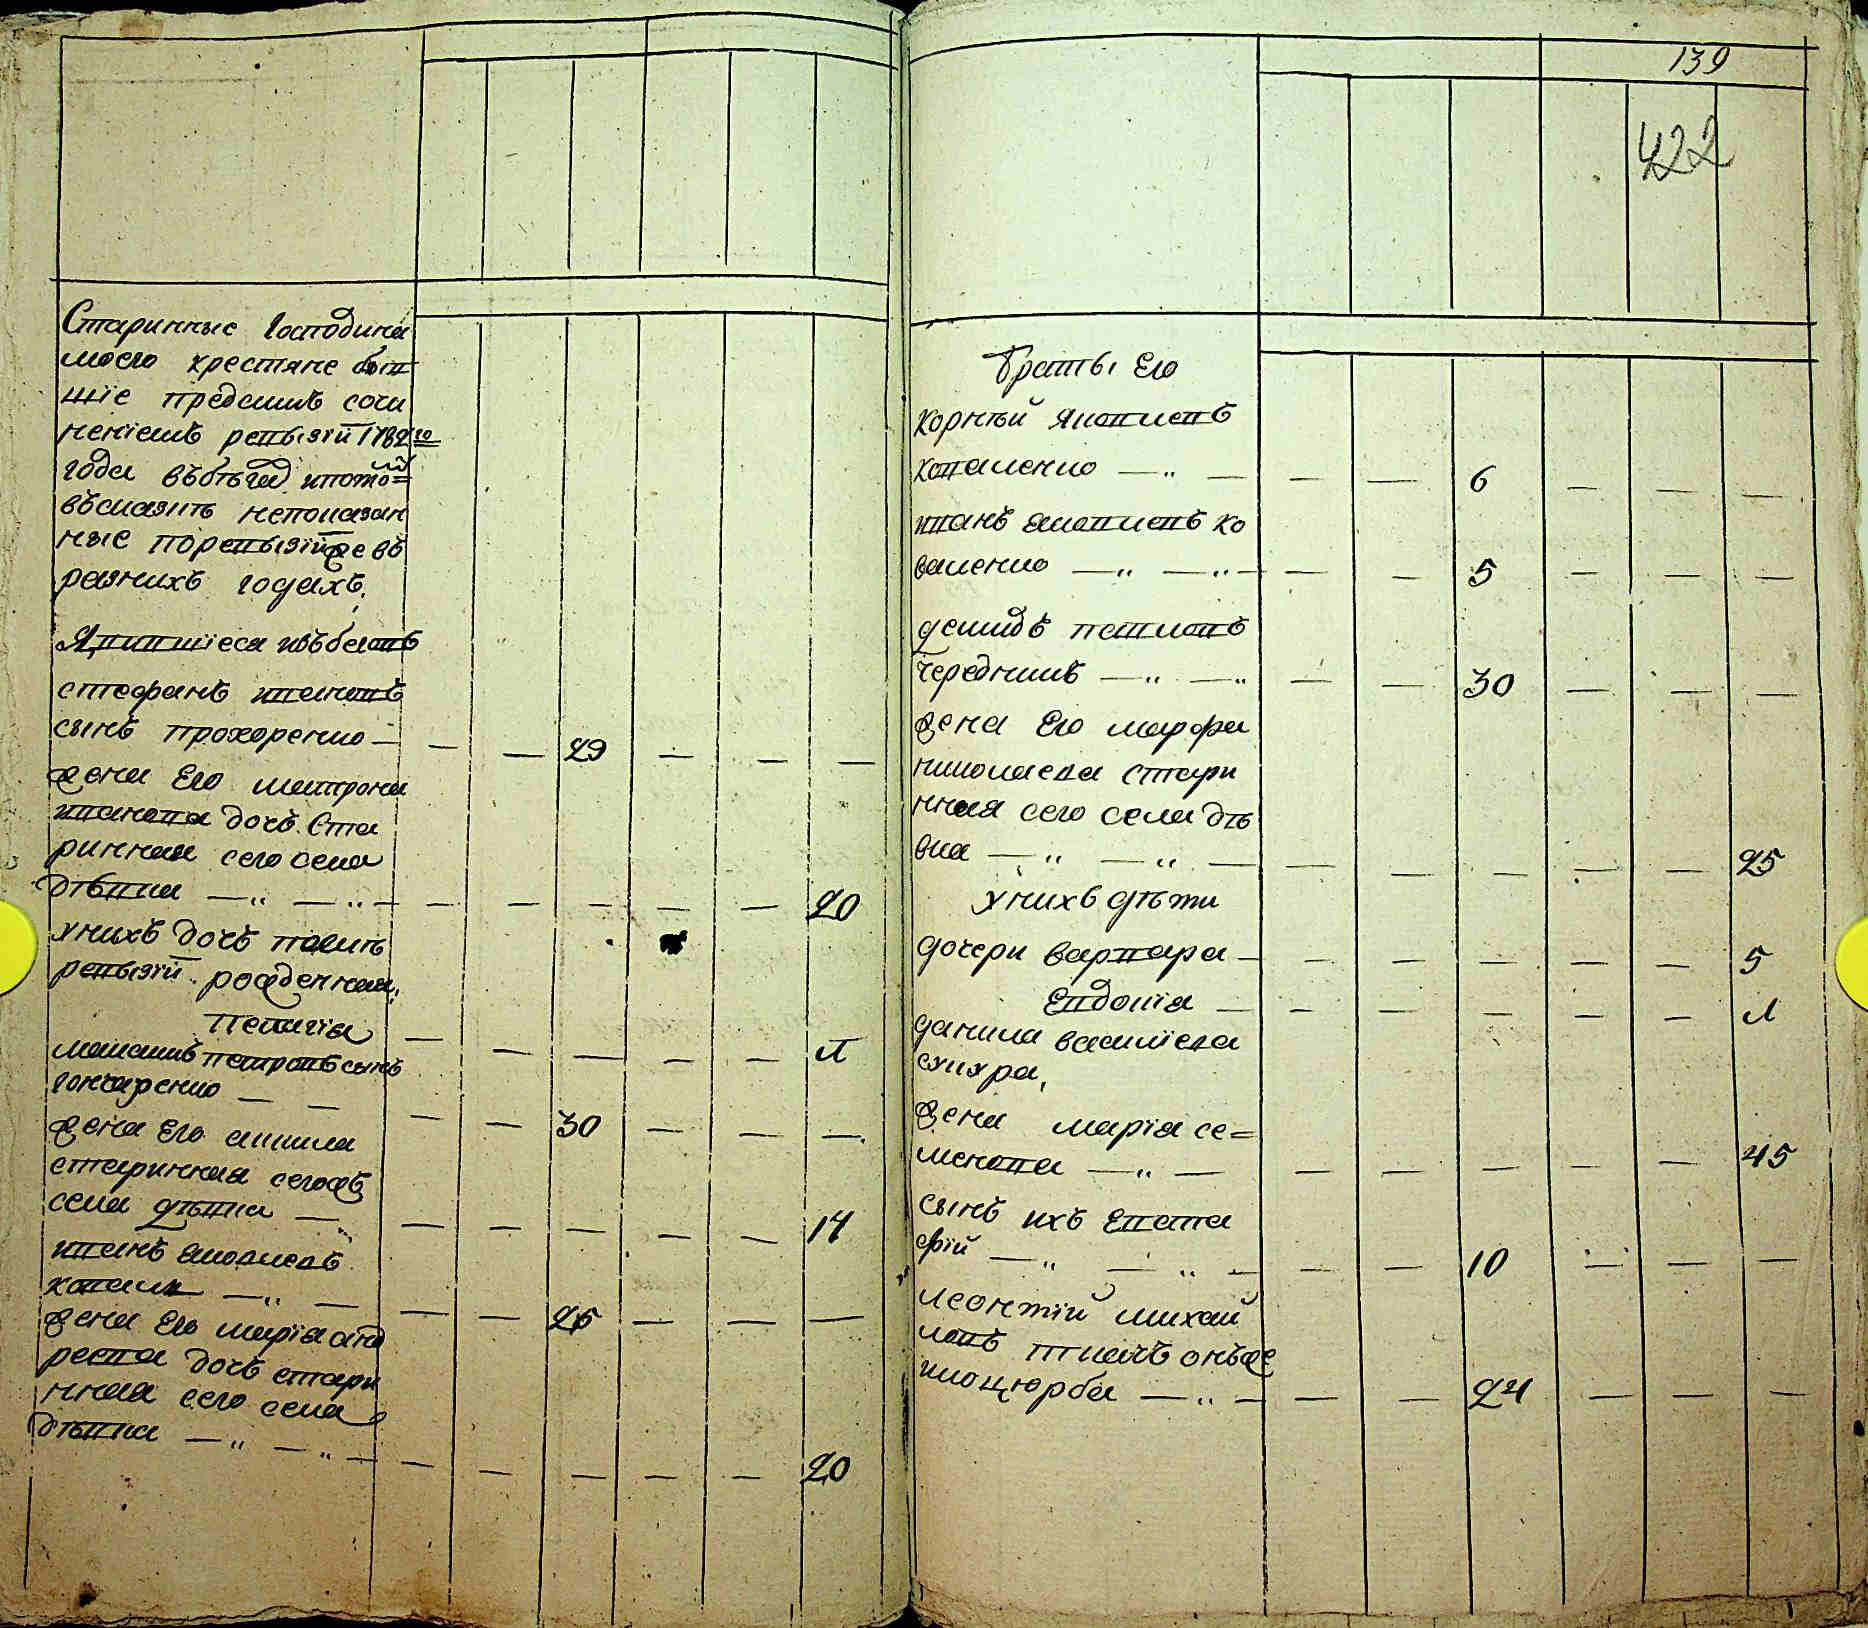 Старинные Господина
моего крестяне быв
шїе предсимъ сочи
ненїемъ ревызїй 1782го
года въбѣгах ипотомй
въсказить непоказан
ные поревызїй же въ
разнихъ годахъ.
Явившїеся изъбеговъ
стефанъ ивановъ
сынъ прохоренко — — — 29 — — —
жена Его матрона
иванова дочъ. Ста
ринная сего села
дѣвка — „ — „ — — — — — — 20
унихъ дочъ послѣ
ревызїй. рожденная,
Пелагїя — — — — — л
малашъ петровъ сынъ
гончаренко — — — — 30 — — —
жена Его акилла
старинная сегожъ
села дѣвка — — — — — — 14
иванъ яковлевъ
коваль — „ — — — 26 — — —
жена Его марїя анд
реева дочъ стари
нная сего села
дѣвка — „ — „ — — — — — — 20
139
422
Браты Его
корнѣй Яковлевъ
коваленко — „ — — — 6 — — —
иванъ яковлевъ ко
валенко — „ — „ — — — 5 — — —
демидъ павловъ
чередникъ — „ — „ — — 30 — — —
жена Его марфа
николаева стари
нная сего села дѣ
вка — „ — „ — — — — — — 25
унихъ дѣти
дочери варвара — — — — — — 5
Евдокїя — — — — — — л
данила васильева
скура,
жена марїя се=
менова — „ — — — — — — 45
сынъ ихъ Евста
фїй — „ — „ — — — 10 — — —
леонтїй михай
ловъ ткачъ онъже
коцюрба — „ — — — 24 — — —